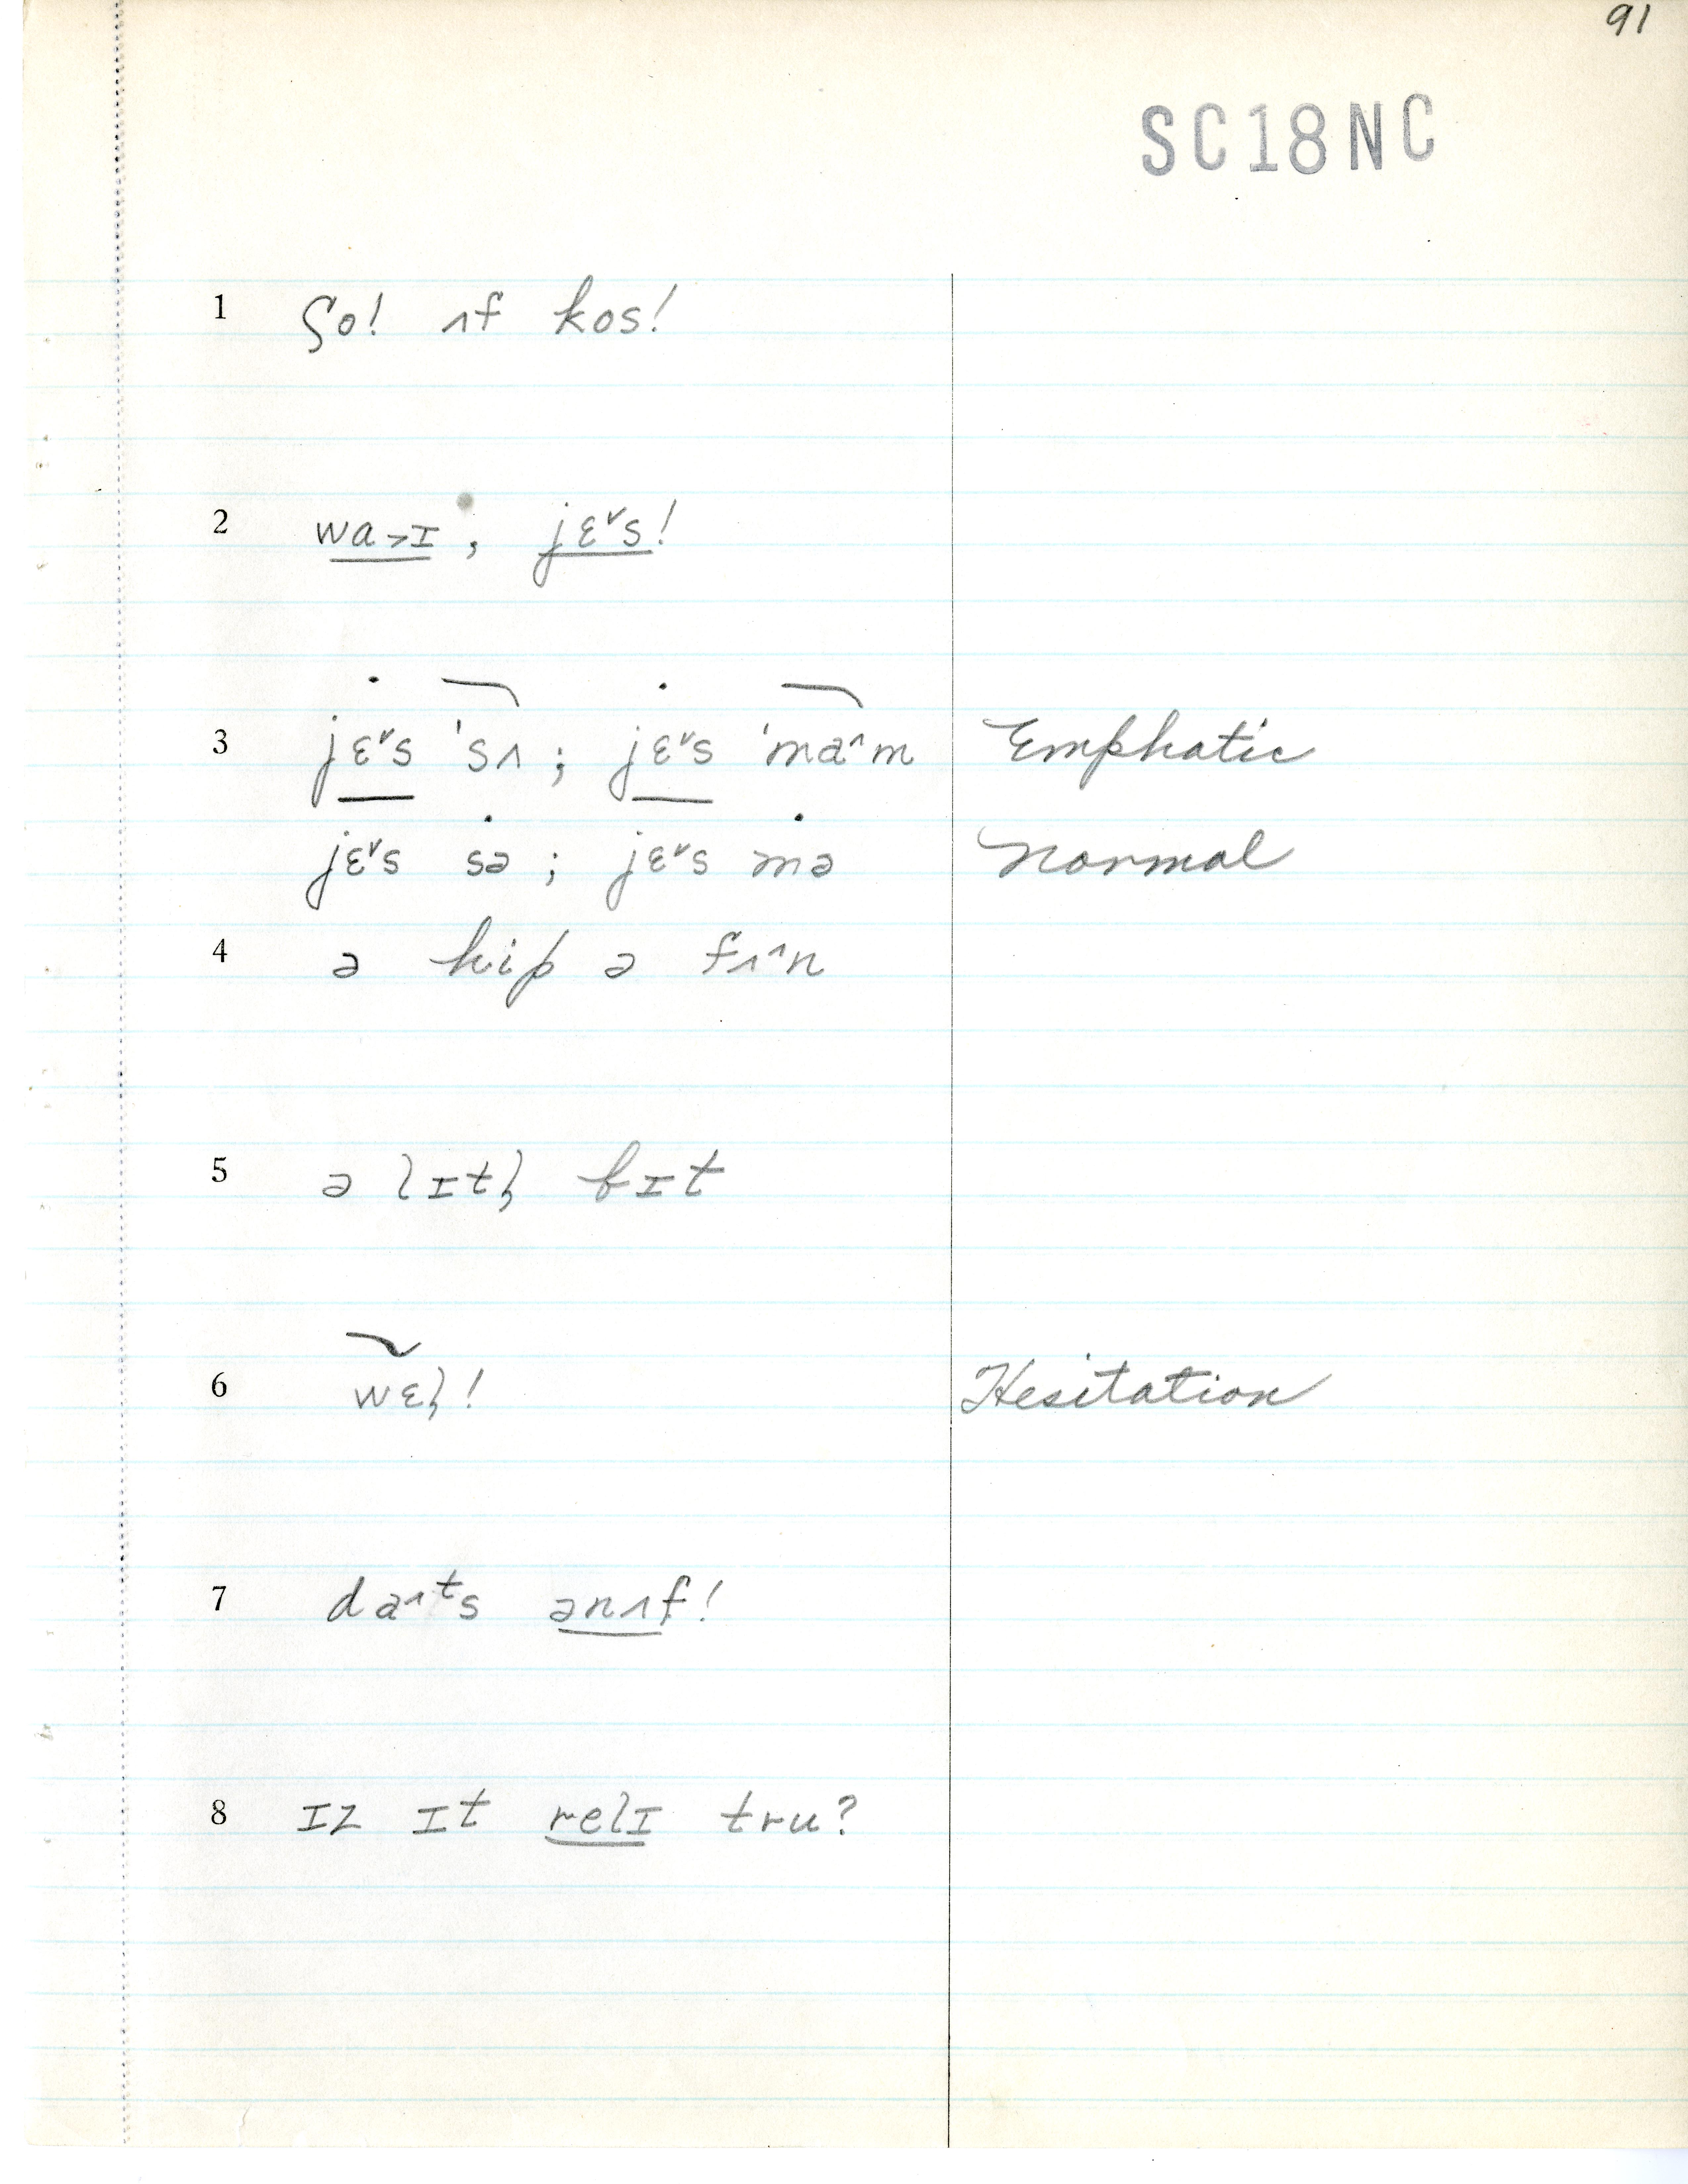 91
SC18NC
1 ʃo! ʌf kos!
2 wa˃ɪ, jɛ˅s!
3 jɛ˅s 'sʌ; jɛ˅s 'ma˄m Emphatic
jɛ˅s sə; jɛ˅s mə Normal
4 ə hip ə fʌ˄n
5 ə lɪtl̩ bɪt
6 wɛl! Hesitation
7 da˄ᵗs ənʌf!
8 ɪz ɪt relɪ tru?